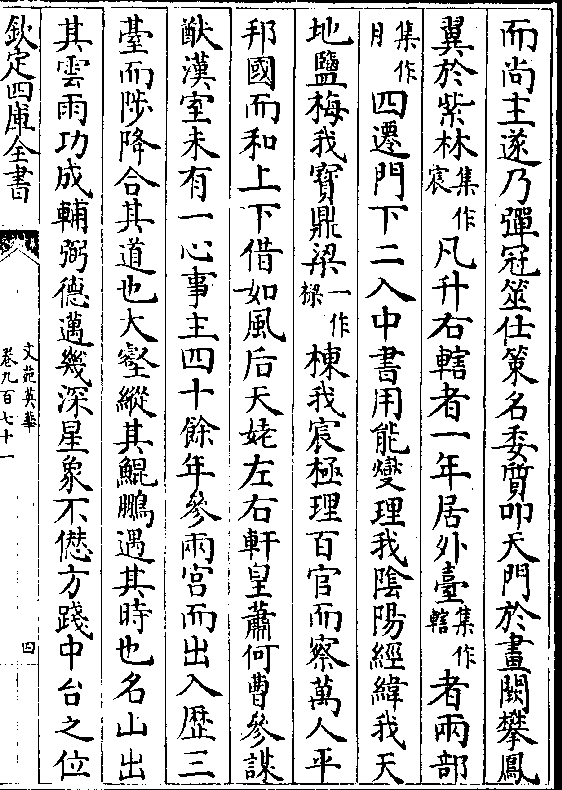 而尚主遂乃彈冠筮仕策名委質叩天門於畫闕攀鳳
翼於紫林集作宸凡升右轄者一年居外臺集作轄者兩部
集作月四遷門下二入中書用能燮理我陰陽經緯我天
地鹽梅我寶鼎梁一作樑棟我宸極理百官而察萬人平
邦國而和上下借如風后天姥左右軒皇蕭何曹參謀
猷漢室未有一心事主四十餘年參兩宮而出入歷三
臺而陟降合其道也大壑縱其鯤鵬遇其時也名山出
其雲雨功成輔弼德邁幾深星象不僁方踐中台之位
欽定四庫全書
文苑英華
卷九百七十一
四